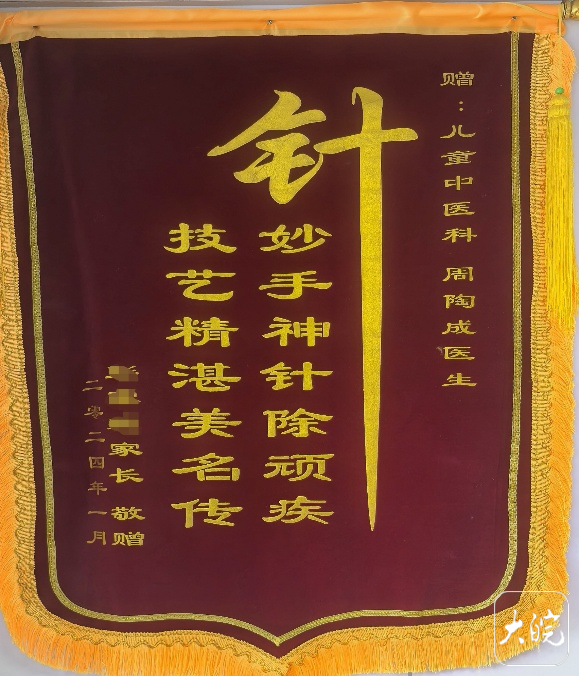 赠：儿童中医科 周陶成医生
针
妙手神针除顽疾
技艺精湛美名传
家长 敬赠
二零二四年一月
大皖